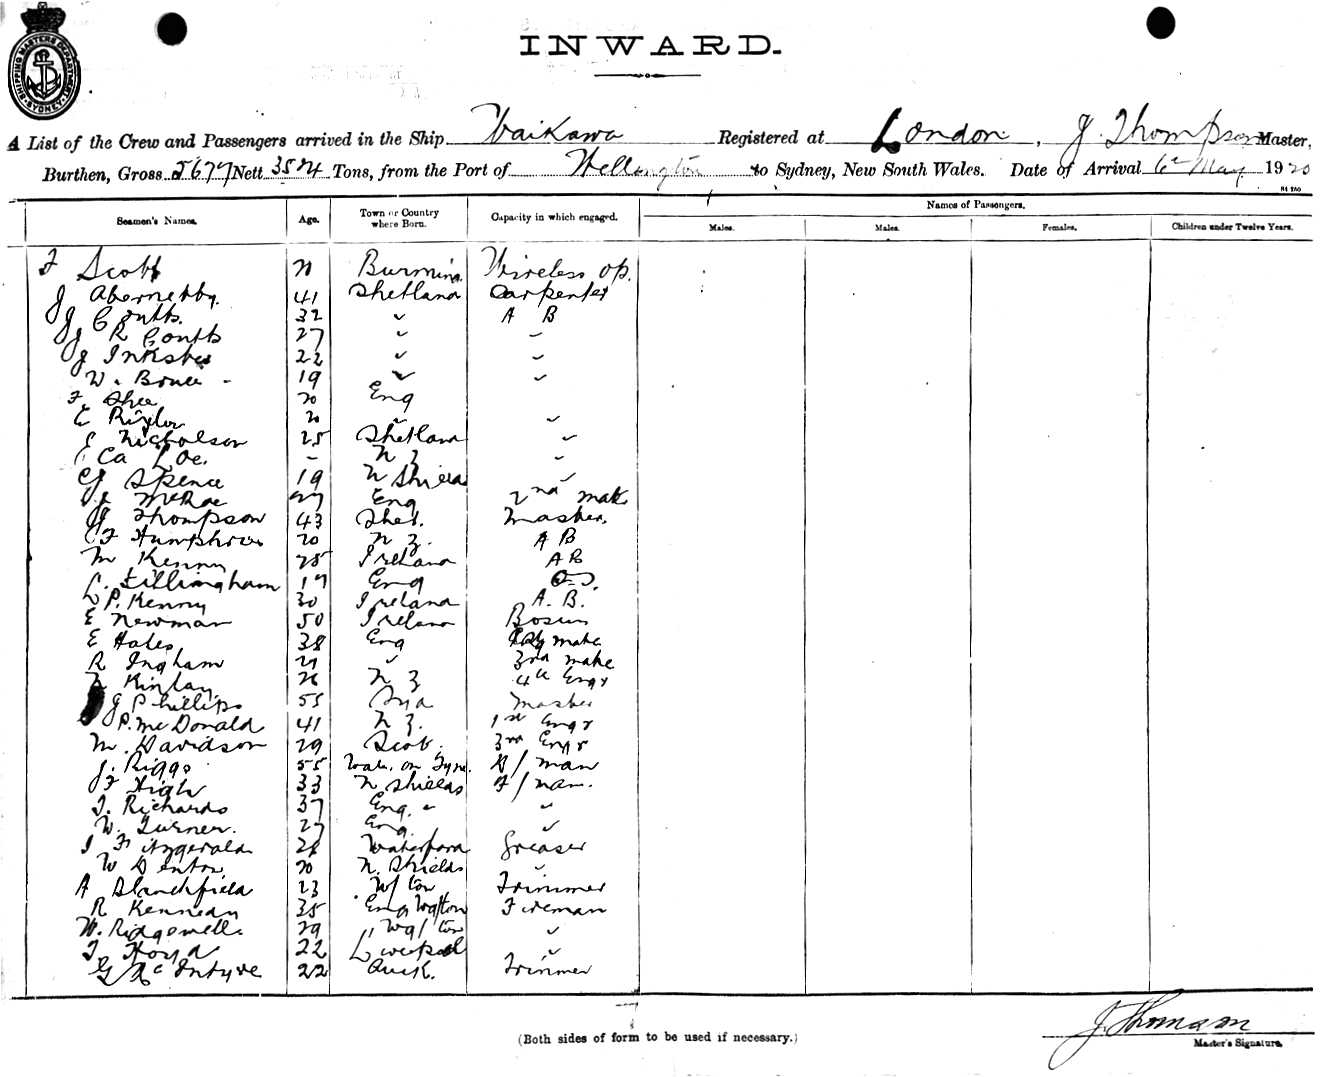 SHIPPING MASTERS DEPARTMENT SYDNEY
INWARD.
A List of the Crew and Passengers arrived in the Ship Waikawa Registered at London, J. Thompson Master,
Burthen, Gross 5677 Nett 3574 Tons, from the Port of Wellington to Sydney, New South Wales. Date of Arrival 6th May 1920
Seamen's Names. Age. Town or Country where Born. Capacity in which engaged. Names of Passengers.
Males. Males. Females. Children under Twelve Years.
F Scott Wireless op.
J Abernethy. 41 Shetland Carpenter
J Coutts. 32 " A B
J R Coutts 27 " "
J Inkster 22 " "
W. Bruce - 19 " "
F. Shee 20 Eng
E 20 " "
E Nicholson 25 Shetland "
N Z "
Spence 19 N Shields "
McRae 27 Eng 2nd mate
J Thompson 43 Shet. Master.
F Humphries 20 N Z. A B
M Kenny 25 Ireland AB
L. Fillingham 17 Eng
P. Kenny 30 Ireland A. B.
E Newman 50 Ireland Bosun
E Hales 38 Eng mate
R Ingham 21 " 3rd mate
Kinlay 26 N Z 4th Engr
J Phillips 55 Master
P. McDonald 41 N Z. 1st Engr
M. Davidson 29 Scot. 3rd Engr
J. Riggs 55 on Tyne. D/man
F High 33 N Shields F/man.
T. Richards 37 Eng. " "
W. Turner. 27 Eng "
J Fitzgerald 28 Waterford Greaser
W Denton, 20 N. Shields "
A Blanchfield 23 W/ton Trimmer
R Kennedy 35 Fireman
W. Ridgewell. 29 "
T 22 Liverpool "
G McIntyre 22 Trimmer
(Both sides of form to be used if necessary.)
J. Thomson
Master's Signature.